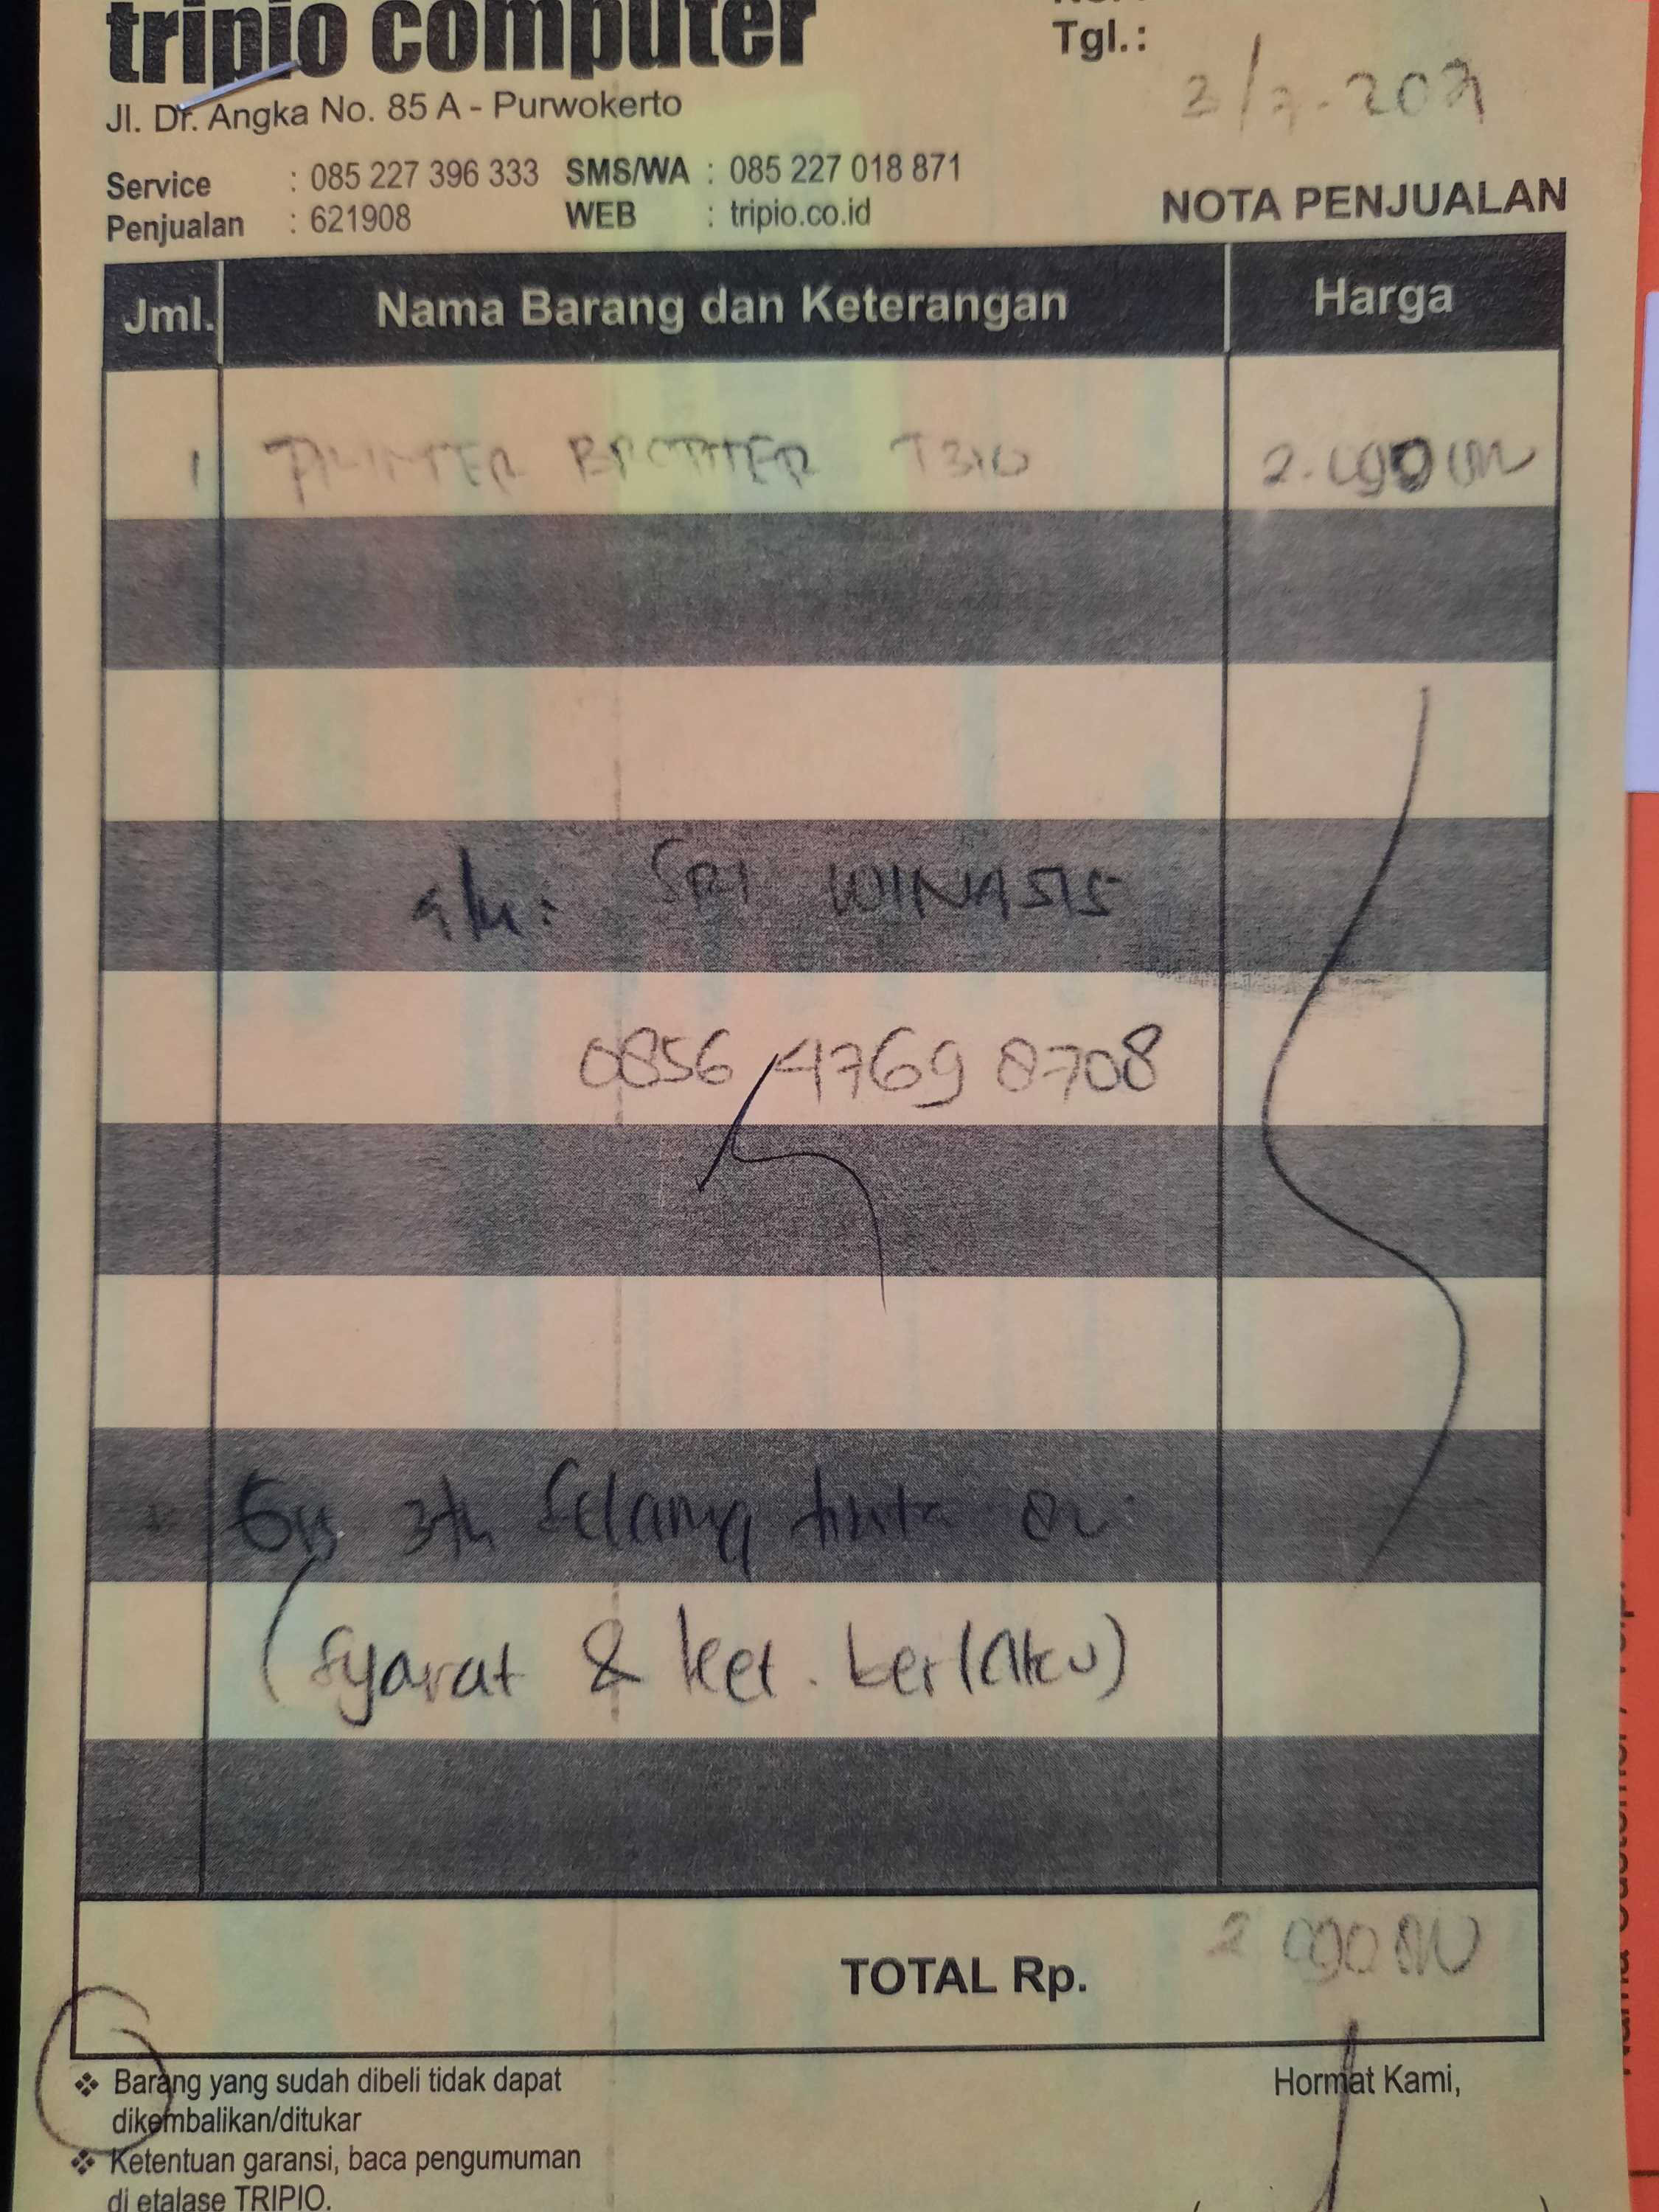 tripio computer
Tgl.:
Jl. Dr. Angka No. 85 A - Purwokerto
Service : 085 227 396 333 SMS/WA : 085 227 018 871
Penjualan : 621908 WEB : tripio.co.id
NOTA PENJUALAN
Jml. Nama Barang dan Keterangan Harga
1 PRINTER BROTHER T310
a/n: SRI WINASIS
0856 4769 8708
3th Selama tinta ori
(Syarat & ket. berlaku)
TOTAL Rp.
Barang yang sudah dibeli tidak dapat
dikembalikan/ditukar
Ketentuan garansi, baca pengumuman
di etalase TRIPIO.
Hormat Kami,